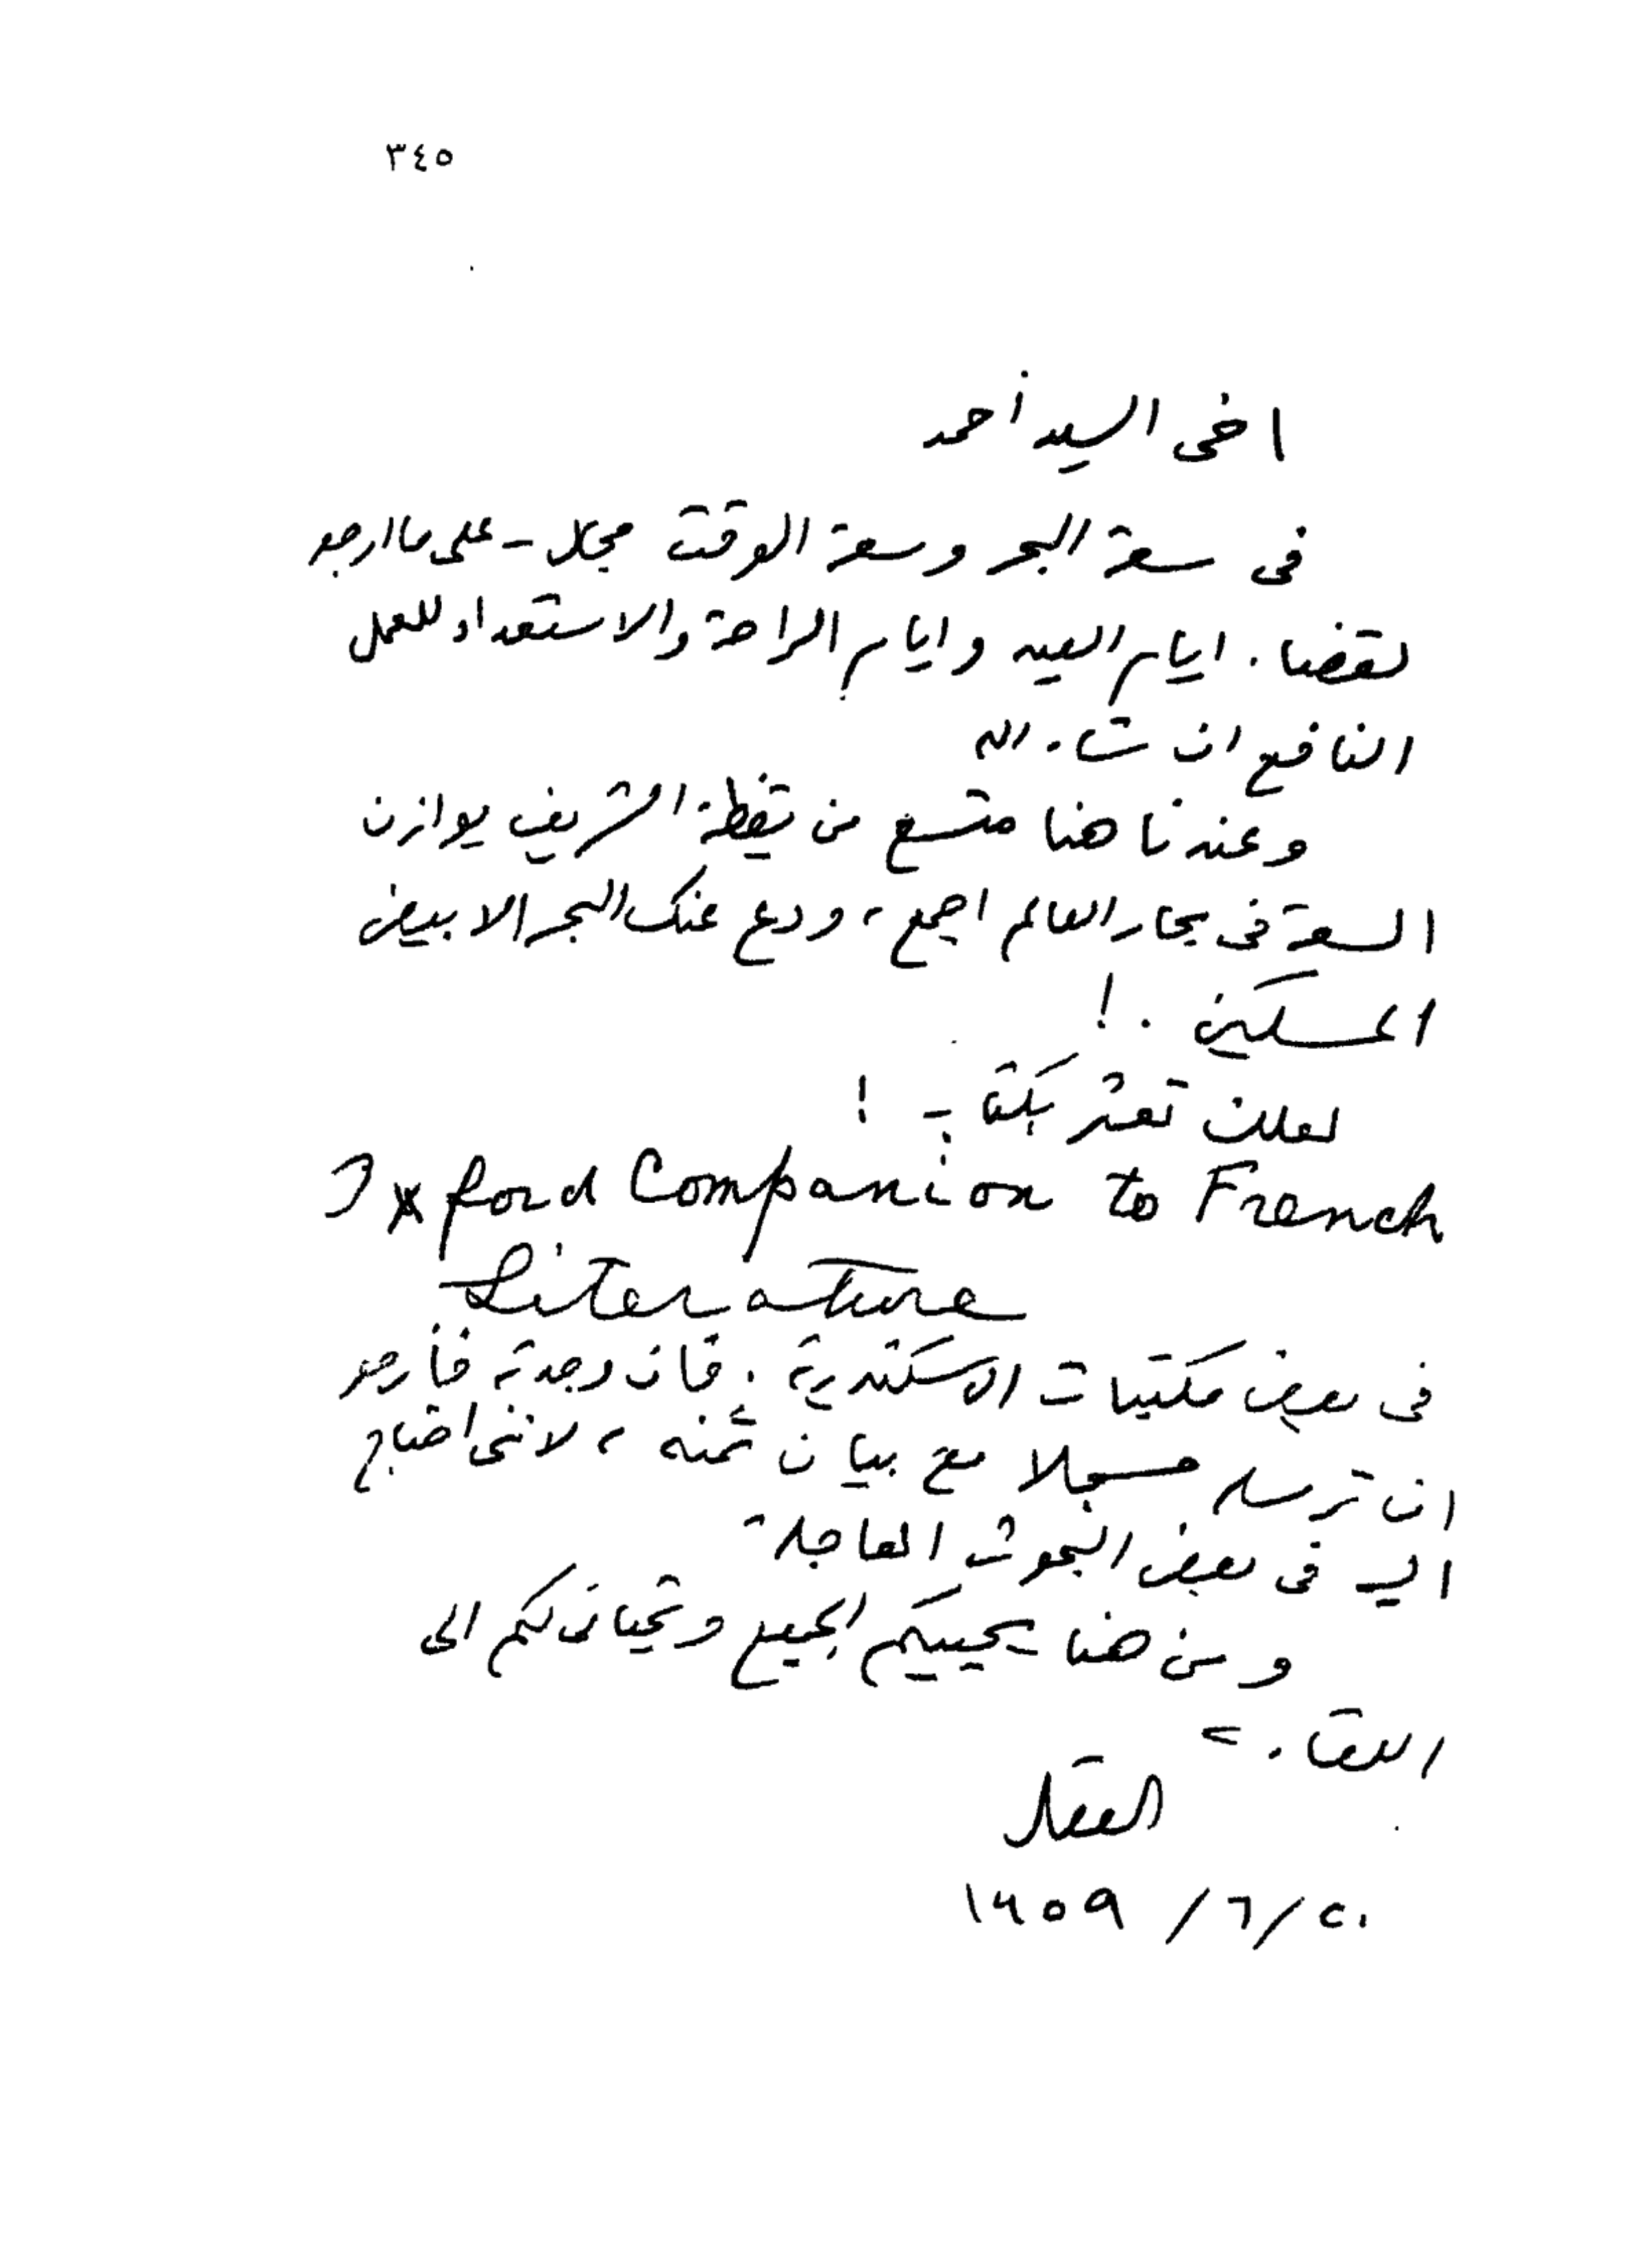 ٣٤٥
اخى السيد أحمد
فى سعة البحر وسعة الوقت مجال - على ما ارجو
لقضاء ايام العيد وايام الراحة والاستعداد للعمل
النافع ان شاء الله
وعندنا هنا متسع من يقظة الشريف يوازن
السعة فى بحار العالم اجمع، ودع عنك البحر الابيض
المسكين . !
لعلك تعثر بكتاب - !
Oxford Companion to French
Literature
فى بعض مكتبات الاسكندرية . فان وجدته فأرجو
ان ترسله مسجلا مع بيان ثمنه، لاننى احتاج
اليه فى بعض البحوث العاجلة
ومن هنا يحييكم الجميع وتحياتى لكم الى
اللقاء . =
العقاد
٢٠ / ٦ / ١٩٥٩